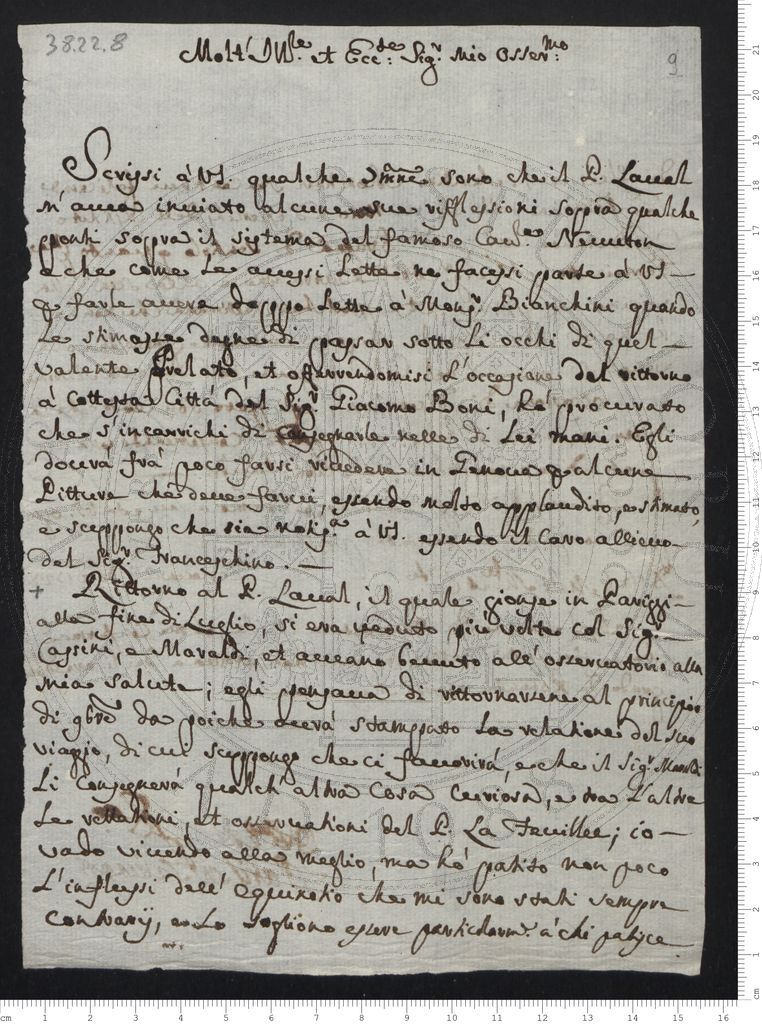 38.22.8
9
Molt' Ill.re et Ecc.te Sig.r mio Osser.mo
Scrissi à VS. qualche sono che il P. Laual
m' auea inuiato alcune sue rifflessioni soppra qualche
ponti soppra il sistema del famoso Cau.re Neuuton
e che come le auessi lette ne facessi parte à VS —
farle auere doppo lette à Mons.r Bianchini quando
le stimasse degne di passar sotto li occhi di quel —
valente Prelato, et offerrendomisi l'occasione del rittorno
à cottessa Città del Sig.r Giacomo Boni, hò procurato
che s'incarrichi di consegnarle nelle di lei mani. Egli
douerà frà poco farsi riuedere in Genoua alcune
Pitture che deue farui, essendo molto applaudito, e stimato,
e scupppongo che sia à VS. essendo il caro allieuo
del Sig.r Franceschino. —
+ Rittorno al P. Laual, il quale gionse in Pariggi —
alla fine di Luglio, si era veduto più volte col Sig.r —
Cassini, e Maraldi, et aueano beuuto all' osseruatorio alla
mia salute; egli pensaua di rittornarsene al principio
di 9bre da poiche auerà stamppato la relatione del suo
viaggio, di cui suppongo che ci fauorirà, e che il Sig.r Maraldi
li consegnerà qualch' altra cosa curiosa, e tra l'altre
le rellationi, et osseruationi del P. La Feuillee; io —
vado viuendo alla meglio, ma hò patito non poco
l'inflessi dell' equinotio che mi sono stati sempre
contrarij, e lo sogliono essere particolarm.e à chi patisce